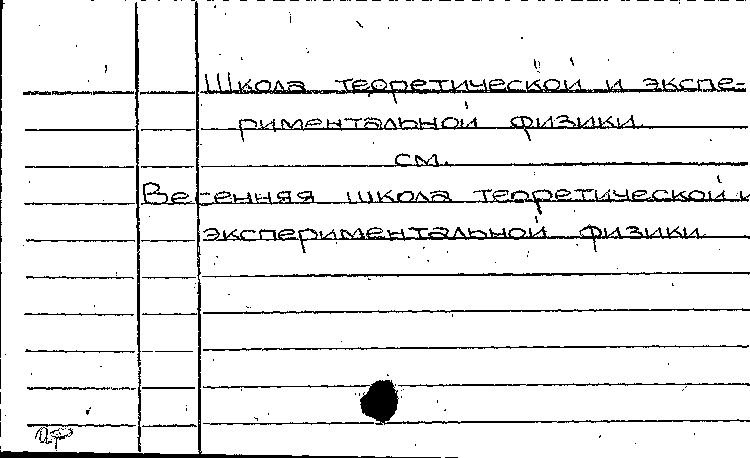 Школа теоретической и экспе-
риментальной физики
см.
Весенняя школа теоретической и
экспериментальной физики